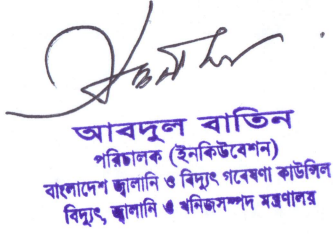 আবদুল বাতিন
পরিচালক (ইনকিউবেশন)
বাংলাদেশ জ্বালানি ও বিদ্যুৎ গবেষণা কাউন্সিল
বিদ্যুৎ, জ্বালানি ও খনিজসম্পদ মন্ত্রণালয়